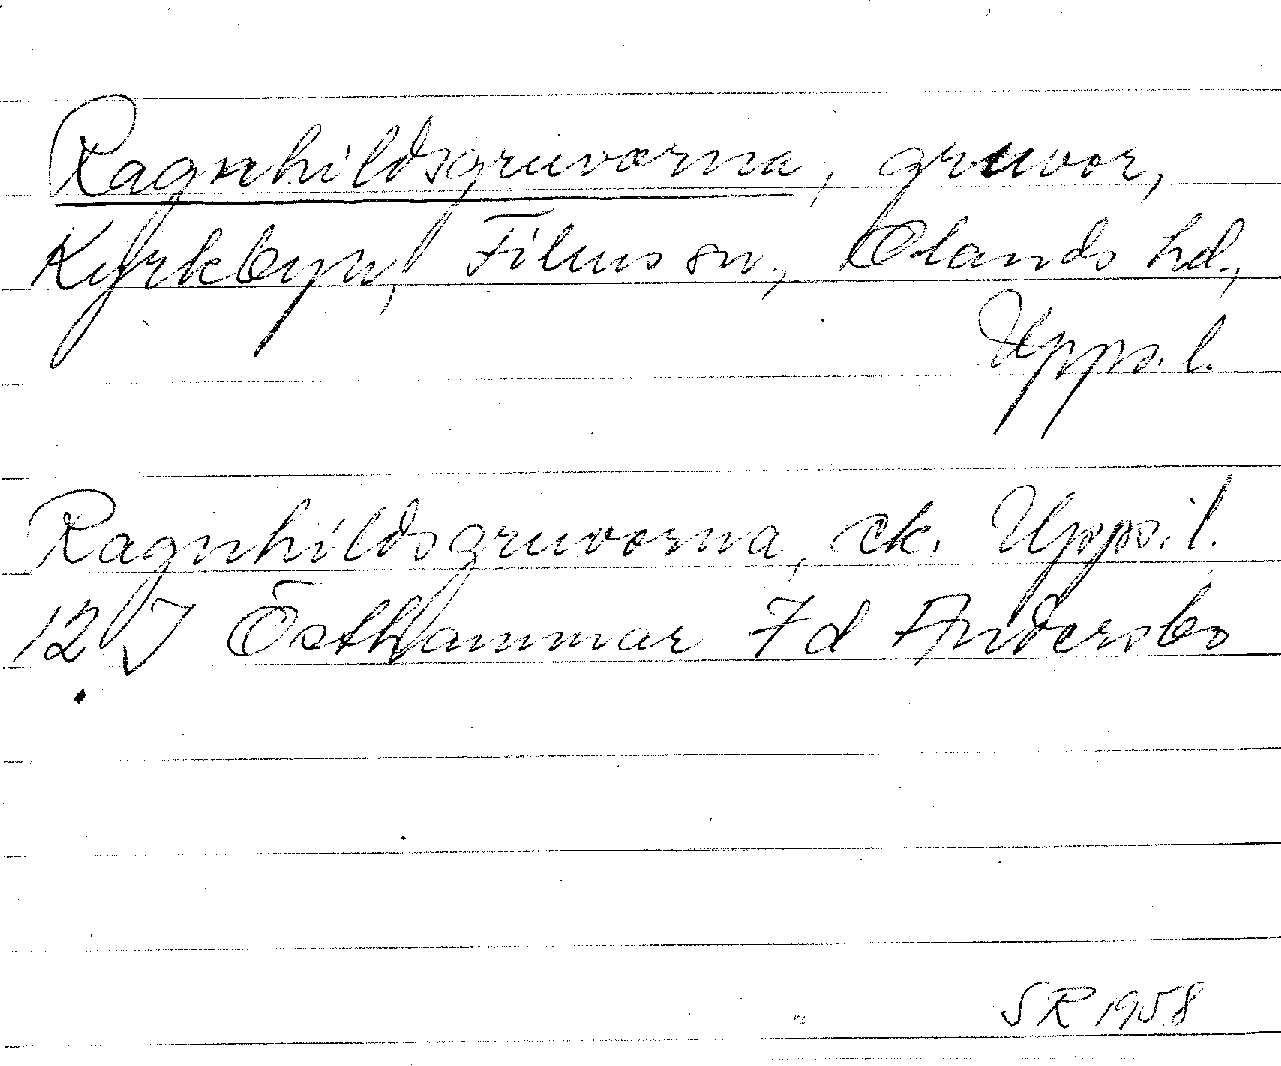 Ragnhildsgruvorna, gruvor,
Kyrkbyn, Films sn, Olands hd.,
Upps. l.
Ragnhildsgruvorna, ek. Upps. l.
12 J Östhammar 7 d Andersbo
SR 1958